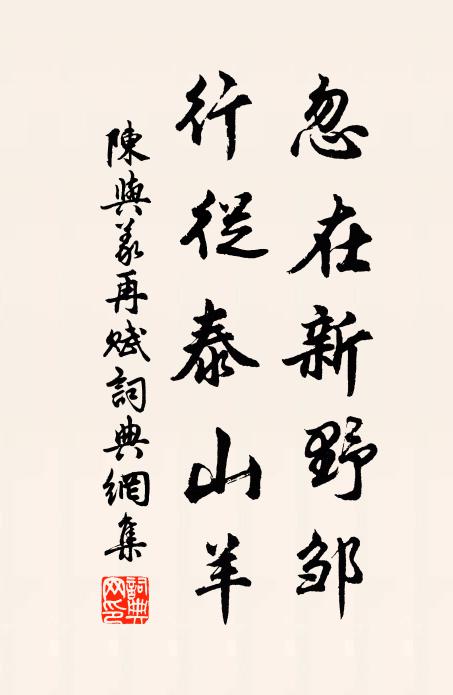 忽在新野邹
行從泰山羊
陳與義再賦詞典網集
詞典網印